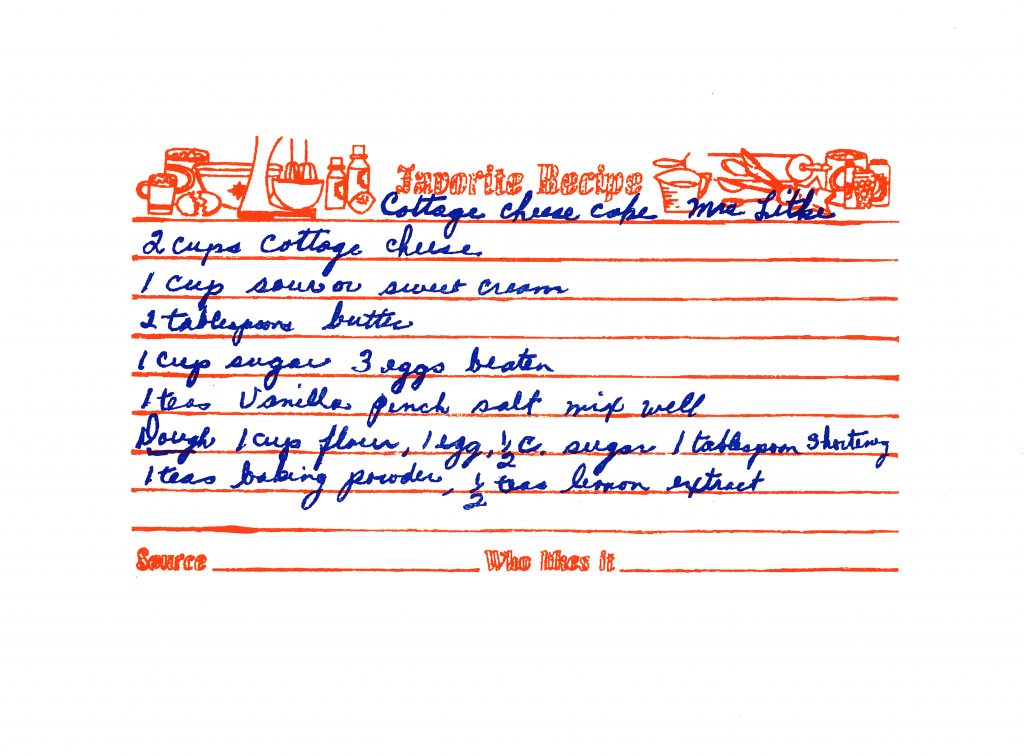 Favorite Recipe
Cottage cheese cake Mrs Litke
2 cups cottage cheese
1 cup sour or sweet cream
2 tablespoons butter
1 cup sugar 3 eggs beaten
1 teas Vanilla pinch salt mix well
Dough 1 cup flour, 1 egg, 1/2 c. sugar 1 tablespoon shortening
1 teas baking powder, 1/2 teas lemon extract
Source Who likes it